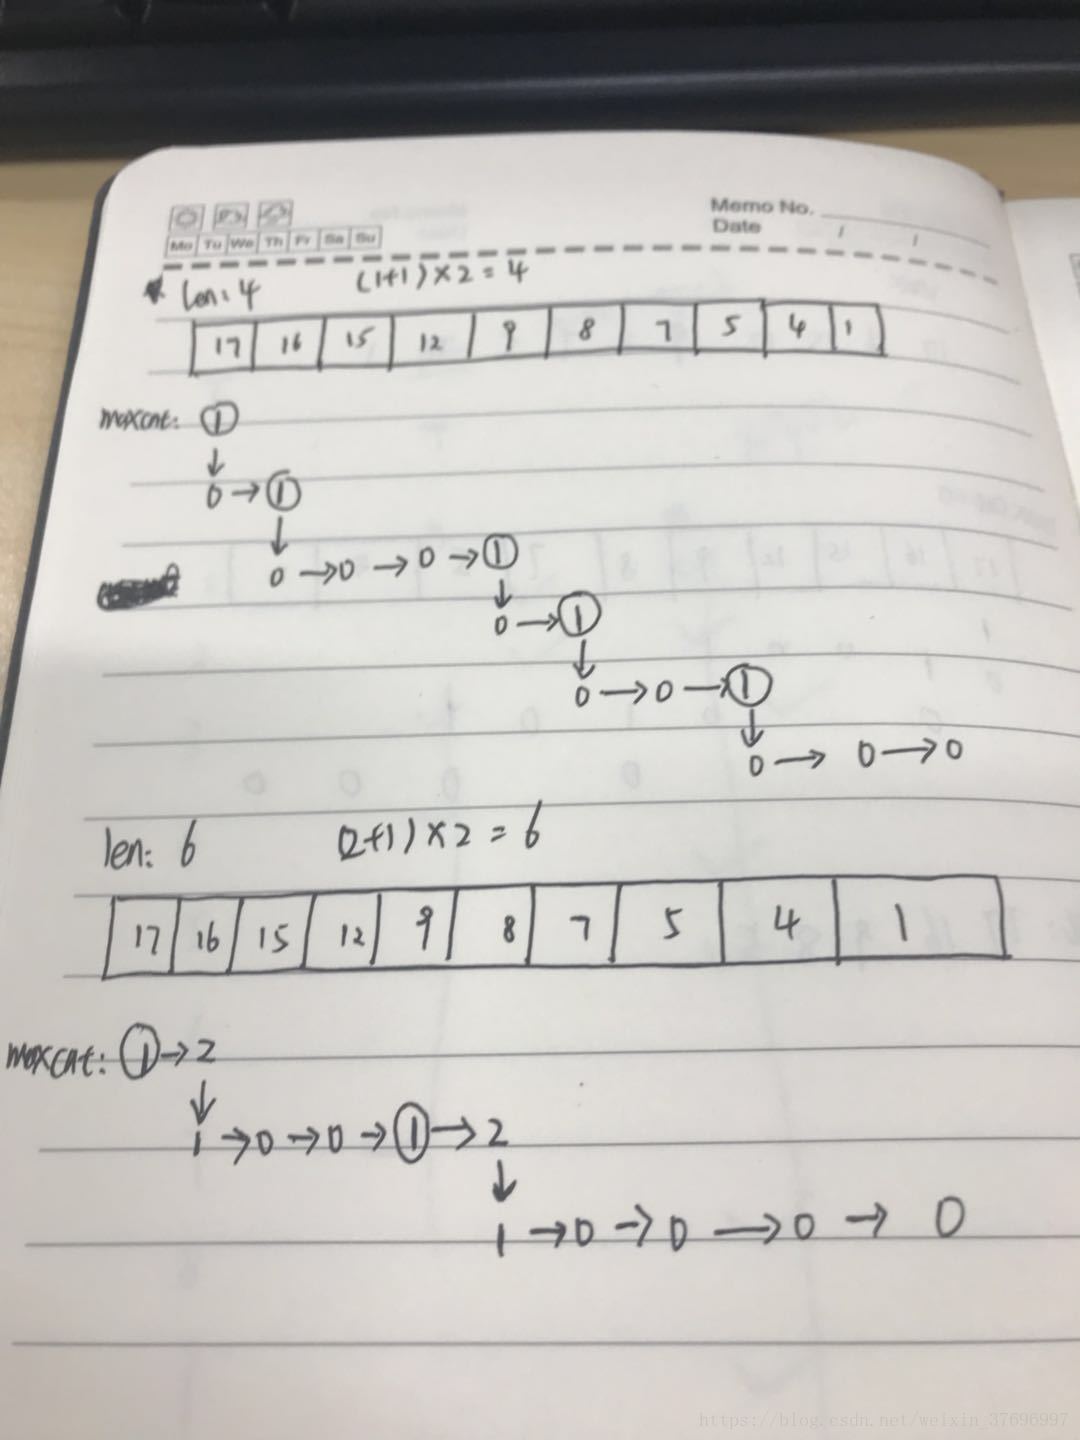 Memo No.
Date / /
Mo Tu We Th Fr Sa Su
len: 4 (1+1)×2=4
17 16 15 12 9 8 7 5 4 1
maxcnt: 1
↓
0→1
↓
0→0→0→1
↓
0→1
↓
0→0→1
↓
0→0→0
len: 6 (2+1)×2=6
17 16 15 12 9 8 7 5 4 1
maxcnt: 1→2
↓
1→0→0→1→2
↓
1→0→0→0→0
https://blog.csdn.net/weixin_37696997